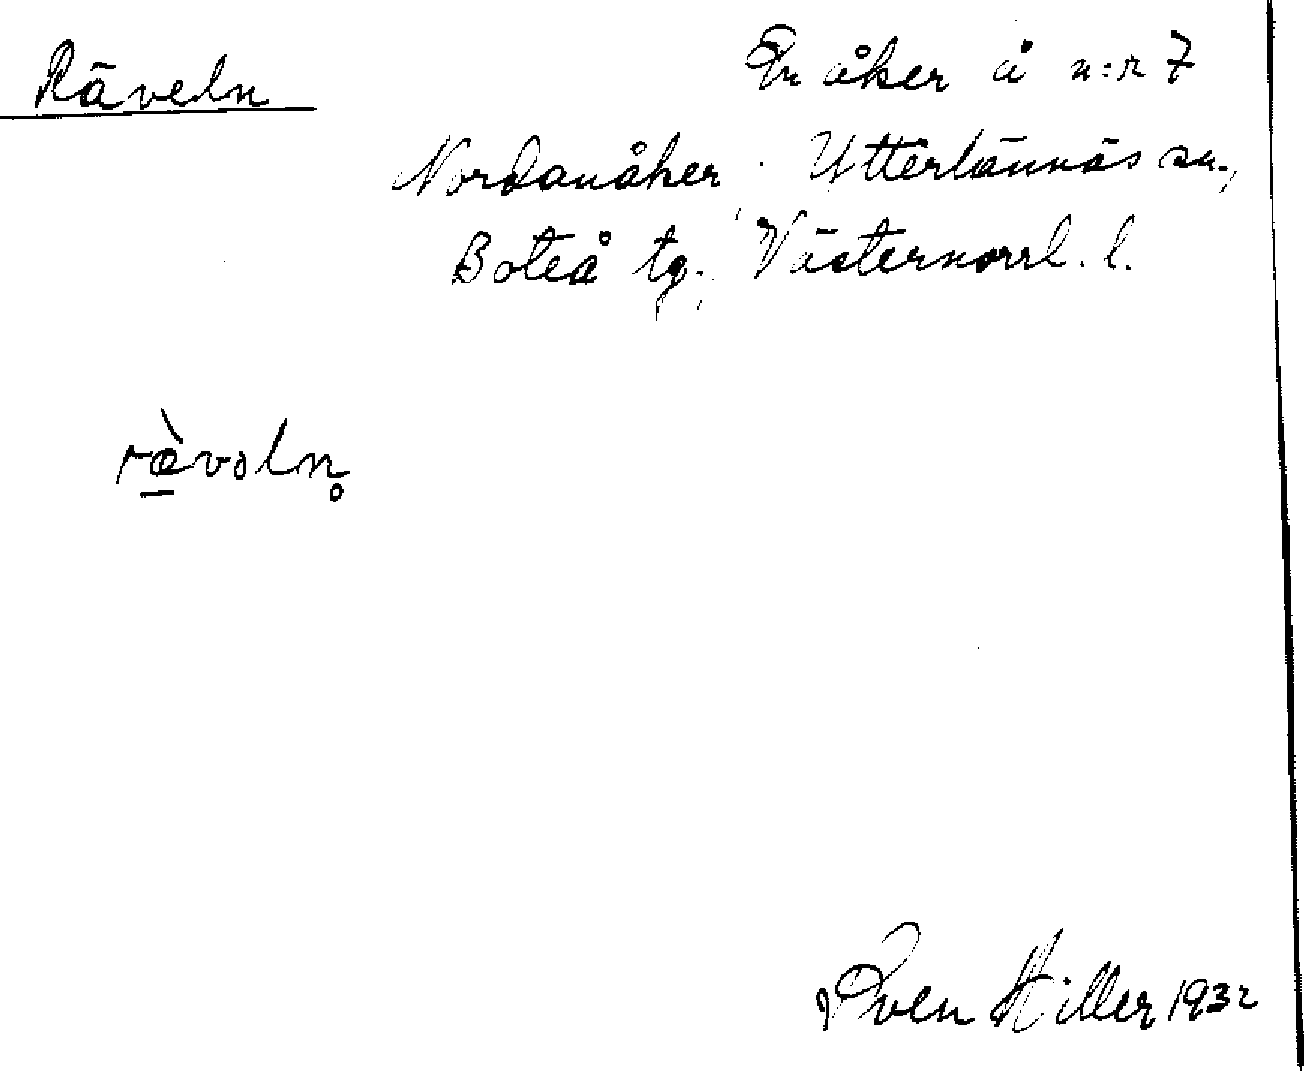 Räveln
En åker å n:r 7
Nordanåker, Ytterlännäs sn.,
Boteå tg., Västernorrl. l.
ræ̀vəln̥
Sven Hiller 1932